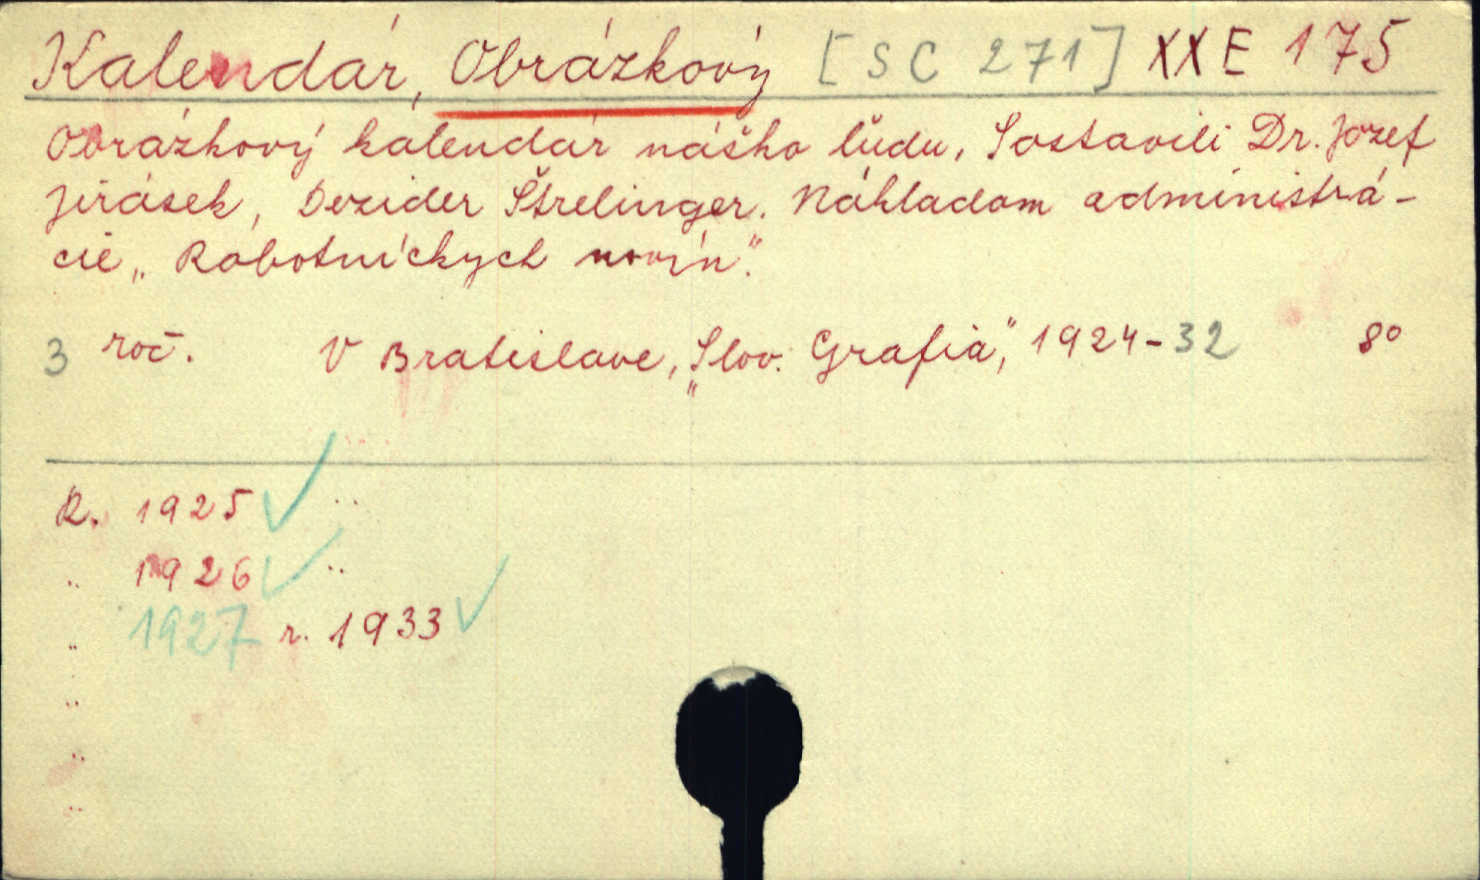 Kalendár, Obrázkový [SC 271] XXE 175
Obrázkový kalendár nášho ľudu, Sostavili Dr. Jozef
Jirásek, Dezider Štrelinger. Nákladom administrá-
cie „Robotníckych novín".
3 roč. V Bratislave, „Slov. Grafia", 1924-32 8°
R. 1925 ✓ "
" 1926 ✓ "
" 1927 r. 1933 ✓
"
"
"